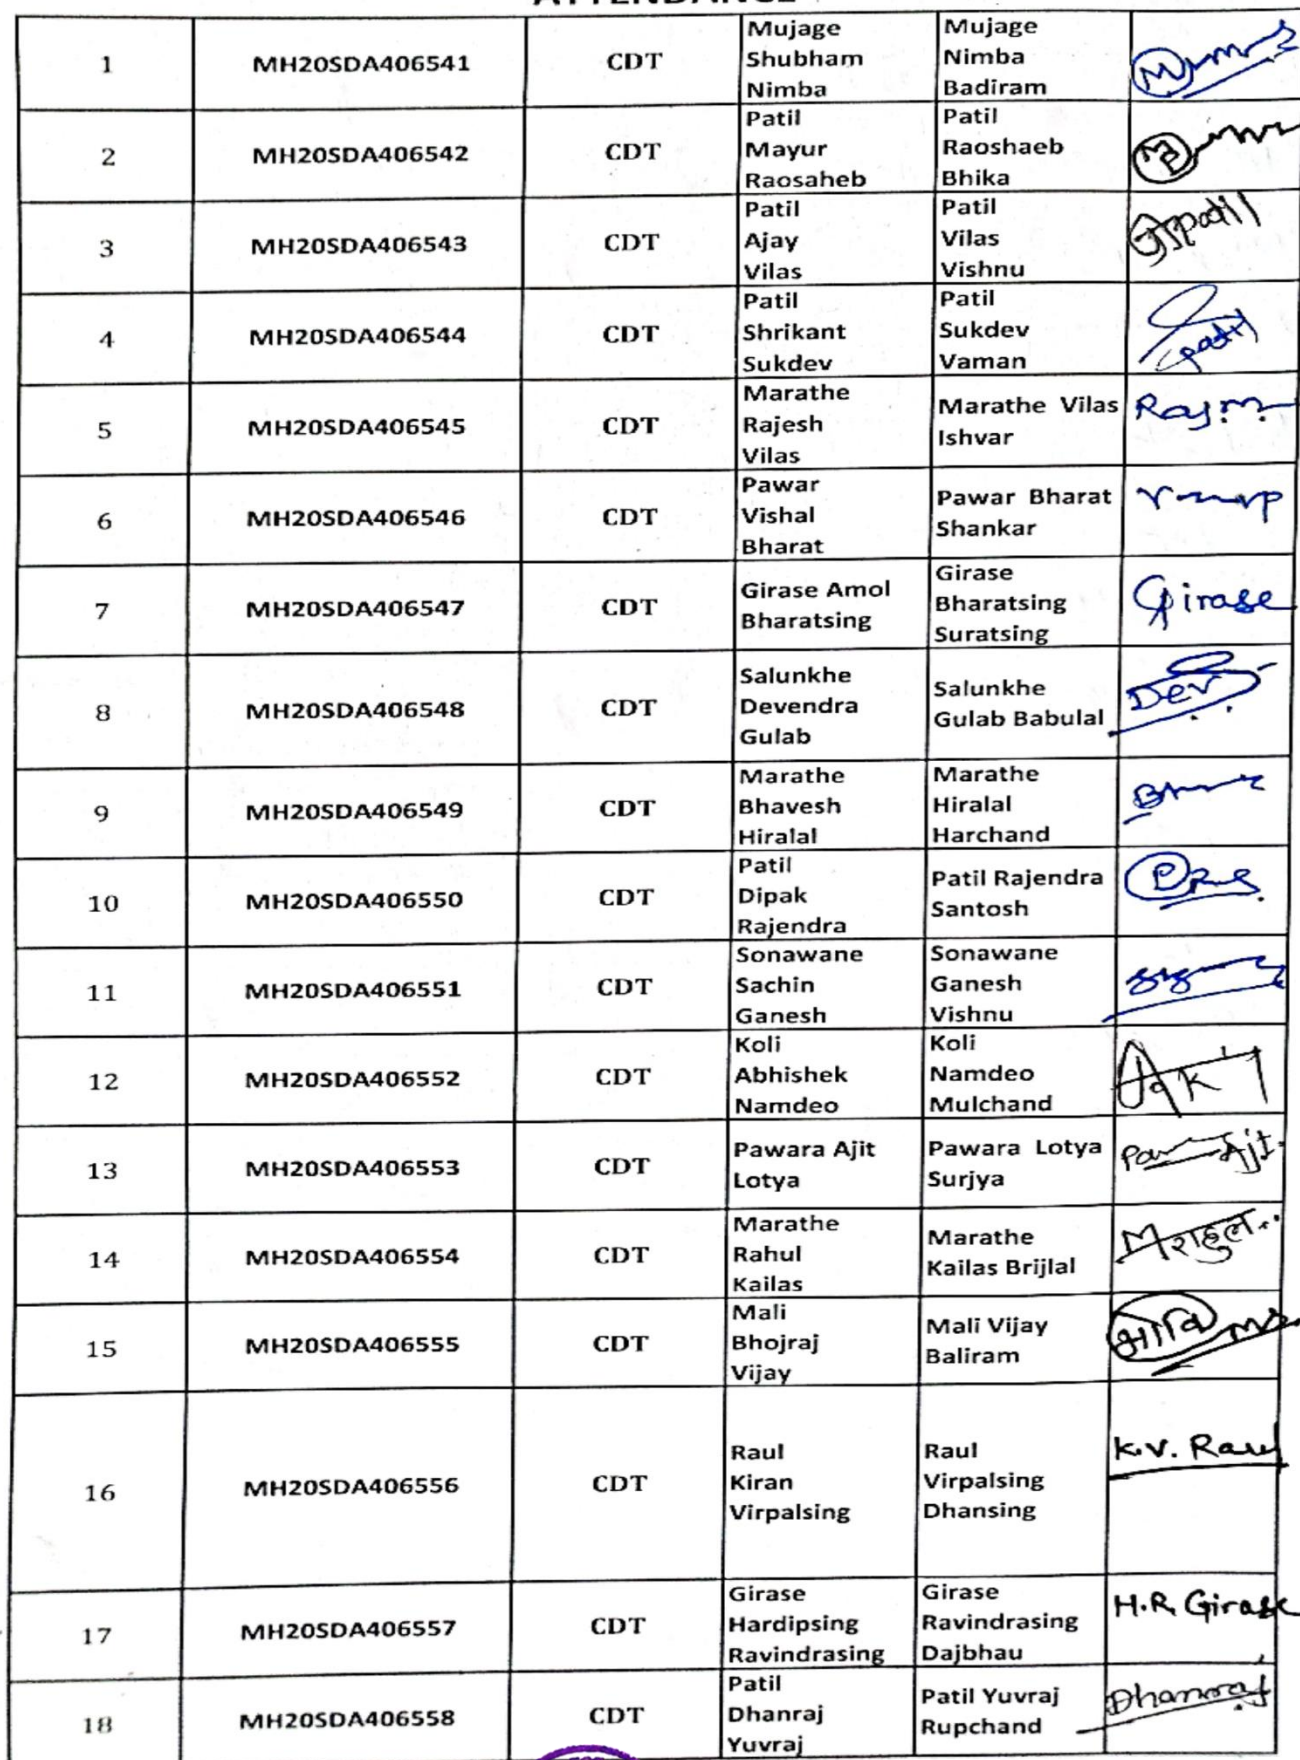 ATTENDANCE
1 MH20SDA406541 CDT Mujage Shubham Nimba Mujage Nimba Badiram
2 MH20SDA406542 CDT Patil Mayur Raosaheb Patil Raoshaeb Bhika
3 MH20SDA406543 CDT Patil Ajay Vilas Patil Vilas Vishnu
4 MH20SDA406544 CDT Patil Shrikant Sukdev Patil Sukdev Vaman
5 MH20SDA406545 CDT Marathe Rajesh Vilas Marathe Vilas Ishvar
6 MH20SDA406546 CDT Pawar Vishal Bharat Pawar Bharat Shankar
7 MH20SDA406547 CDT Girase Amol Bharatsing Girase Bharatsing Suratsing Girase
8 MH20SDA406548 CDT Salunkhe Devendra Gulab Salunkhe Gulab Babulal Dev
9 MH20SDA406549 CDT Marathe Bhavesh Hiralal Marathe Hiralal Harchand
10 MH20SDA406550 CDT Patil Dipak Rajendra Patil Rajendra Santosh
11 MH20SDA406551 CDT Sonawane Sachin Ganesh Sonawane Ganesh Vishnu
12 MH20SDA406552 CDT Koli Abhishek Namdeo Koli Namdeo Mulchand
13 MH20SDA406553 CDT Pawara Ajit Lotya Pawara Lotya Surjya Ajit
14 MH20SDA406554 CDT Marathe Rahul Kailas Marathe Kailas Brijlal M राहुल
15 MH20SDA406555 CDT Mali Bhojraj Vijay Mali Vijay Baliram
16 MH20SDA406556 CDT Raul Kiran Virpalsing Raul Virpalsing Dhansing K.V. Raul
17 MH20SDA406557 CDT Girase Hardipsing Ravindrasing Girase Ravindrasing Dajbhau H.R. Girase
18 MH20SDA406558 CDT Patil Dhanraj Yuvraj Patil Yuvraj Rupchand Dhanraj